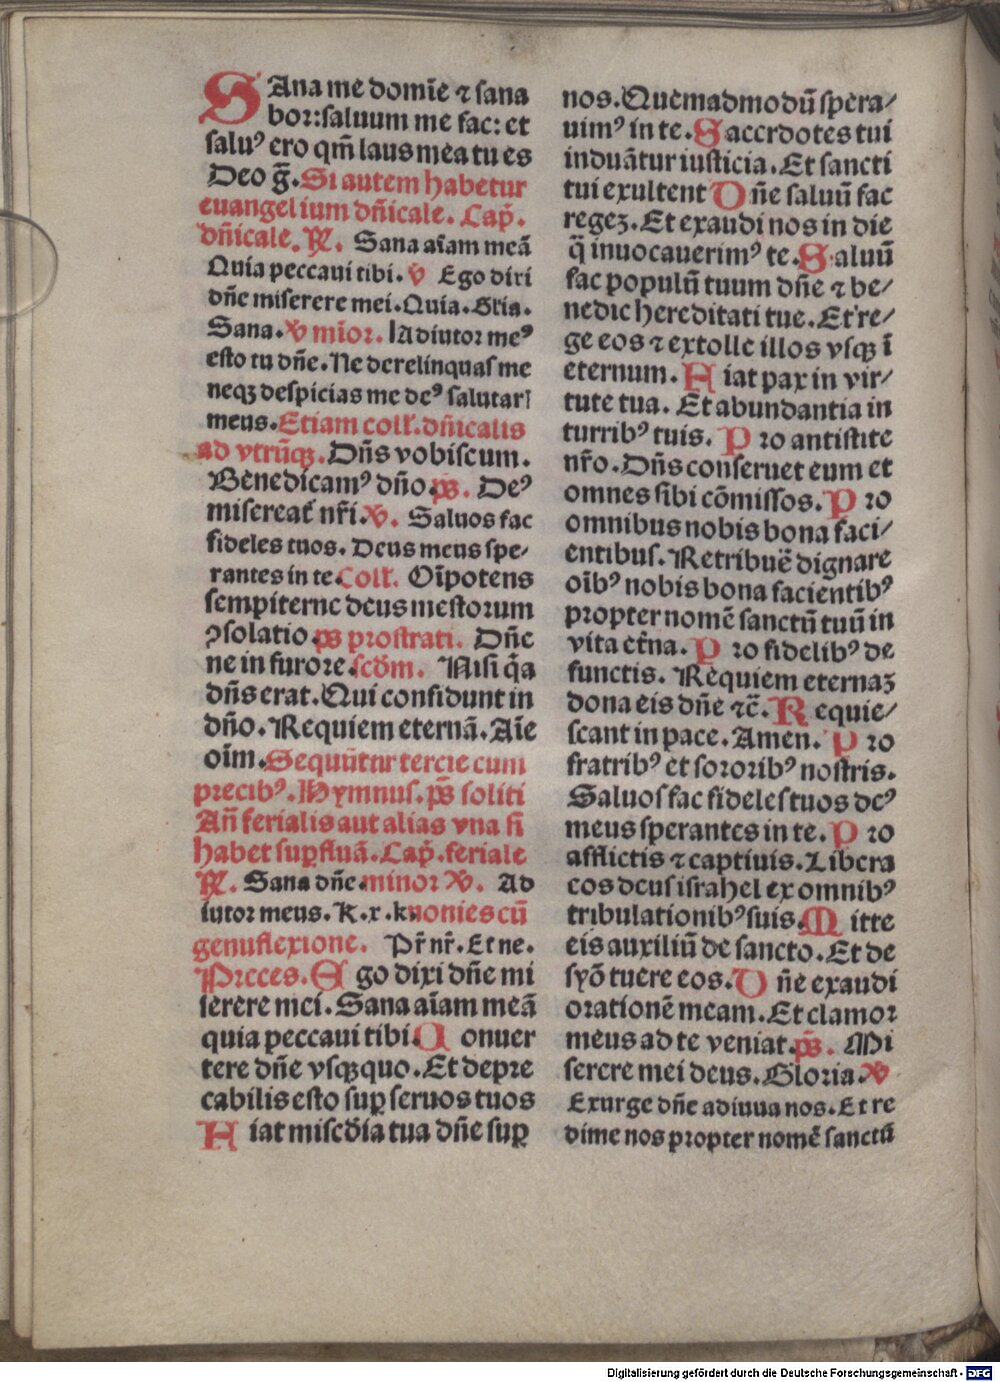 SAna me domīe ⁊ sana
bor: saluum me fac: et
saluꝰ ero qm̄ laus mea tu es
Deo g̅. Si autem habetur
euangelium dn̄icale. Cap̄.
dn̄icale. ꝶ. Sana aīam meā
Quia peccaui tibi. ℣ Ego dixi
dn̄e miserere mei. Quia. Gl̄ia.
Sana. ℣ mīor. Adiutor meꝰ
esto tu dn̄e. Ne derelinquas me
neqꝫ despicias me deꝰ salutarꝭ
meus. Etiam coll̄. dn̄icalis
ad vtrūqꝫ. Dn̄s vobiscum.
Benedicamꝰ dn̄o. p̄s. Deꝰ
misereat̄ nr̄i. ℣. Saluos fac
fideles tuos. Deus meus spe/
rantes in te. Coll̄. Oīpotens
sempiterne deus mestorum
ꝯsolatio. ps prostrati. Dn̄e
ne in furore. scd̄m. Nisi q̄a
dn̄s erat. Qui confidunt in
dn̄o. Requiem eternā. Aīe
oīm. Sequūtur tercie cum
precibꝰ. Hymnus. p̄s soliti
An̄ ferialis aut alias vna si
habet supfluā. Cap̄. feriale
ꝶ. Sana dn̄e. minor ℣. Ad
iutor meus. K. x. k. nonies cū
genuflexione. Pr̄ nr̄. Et ne.
Preces. Ego dixi dn̄e mi
serere mei. Sana aīam meā
quia peccaui tibi. Conuer
tere dn̄e vsqꝫquo. Et depre
cabilis esto suꝑ seruos tuos
Fiat misc̄dia tua dn̄e suꝑ
nos. Quemadmodū spera/
uimꝰ in te. Saccrdotes tui
induātur iusticia. Et sancti
tui exultent Dn̄e saluū fac
regeꝫ. Et exaudi nos in die
q̄ inuocauerimꝰ te. Saluū
fac populū tuum dn̄e ⁊ be/
nedic hereditati tue. Et re/
ge eos ⁊ extolle illos vsqꝫ ī
eternum. Fiat pax in vir/
tute tua. Et abundantia in
turribꝰ tuis. Pro antistite
nr̄o. Dn̄s conseruet eum et
omnes sibi cōmissos. Pro
omnibus nobis bona faci/
entibus. Retribuē dignare
oībꝰ nobis bona facientibꝰ
propter nomē sanctū tuū in
vita et̄na. Pro fidelibꝰ de
functis. Requiem eternaꝫ
dona eis dn̄e ⁊c̄. Requie/
scant in pace. Amen. Pro
fratribꝰ et sororibꝰ nostris.
Saluos fac fideles tuos deꝰ
meus sperantes in te. Pro
afflictis ⁊ captiuis. Libera
eos deus israhel ex omnibꝰ
tribulationibꝰ suis. Mitte
eis auxiliū de sancto. Et de
syō tuere eos. Dn̄e exaudi
orationē meam. Et clamor
meus ad te veniat. p̄s. Mi
serere mei deus. Gloria. ℣
Exurge dn̄e adiuua nos. Et re
dime nos propter nomē sanctū
Digitalisierung gefördert durch die Deutsche Forschungsgemeinschaft - DFG